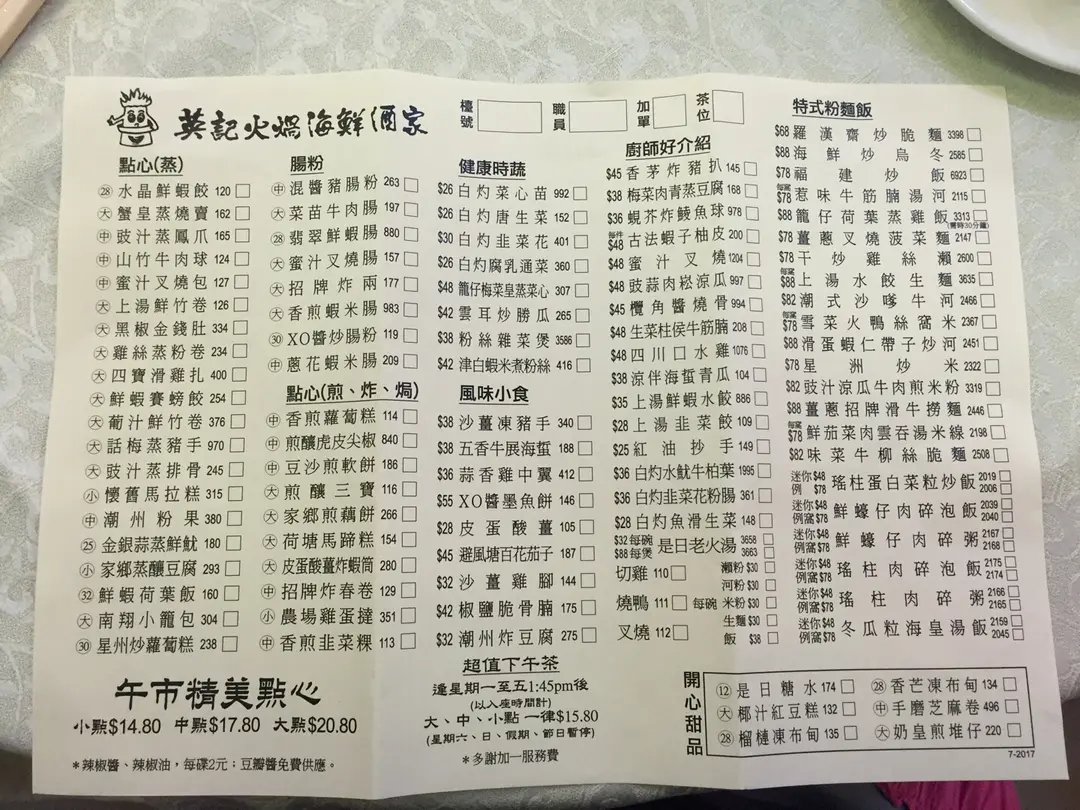 英記火煱海鮮酒家
檯號
職員
加單
茶位
點心(蒸)
㉘ 水晶鮮蝦餃 120
大 蟹皇蒸燒賣 162
中 豉汁蒸鳳爪 165
中 山竹牛肉球 124
中 蜜汁叉燒包 127
大 上湯鮮竹卷 126
大 黑椒金錢肚 334
大 雞絲蒸粉卷 234
大 四寶滑雞扎 400
大 鮮蝦賽螃餃 254
大 葡汁鮮竹卷 376
大 話梅蒸豬手 970
大 豉汁蒸排骨 245
小 懷舊馬拉糕 315
中 潮州粉果 380
㉕ 金銀蒜蒸鮮魷 180
小 家鄉蒸釀豆腐 293
㉜ 鮮蝦荷葉飯 160
大 南翔小籠包 304
㉚ 星州炒蘿蔔糕 238
腸粉
中 混醬豬腸粉 263
大 菜苗牛肉腸 197
㉘ 翡翠鮮蝦腸 880
大 蜜汁叉燒腸 157
大 招牌炸兩 177
大 香煎蝦米腸 983
㉚ XO醬炒腸粉 119
中 蔥花蝦米腸 209
點心(煎、炸、焗)
中 香煎蘿蔔糕 114
中 煎釀虎皮尖椒 840
中 豆沙煎軟餅 186
大 煎釀三寶 116
大 家鄉煎藕餅 266
大 荷塘馬蹄糕 154
大 皮蛋酸薑炸蝦筒 280
中 招牌炸春卷 129
小 農場雞蛋撻 351
中 香煎韭菜粿 113
健康時蔬
$26 白灼菜心苗 992
$26 白灼唐生菜 152
$30 白灼韭菜花 401
$26 白灼腐乳通菜 360
$48 籠仔梅菜皇蒸菜心 307
$42 雲耳炒勝瓜 265
$38 粉絲雜菜煲 3586
$42 津白蝦米煮粉絲 416
風味小食
$38 沙薑凍豬手 340
$38 五香牛展海蜇 188
$36 蒜香雞中翼 412
$55 XO醬墨魚餅 146
$28 皮蛋酸薑 105
$45 避風塘百花茄子 187
$32 沙薑雞腳 144
$42 椒鹽脆骨腩 175
$32 潮州炸豆腐 275
廚師好介紹
$45 香茅炸豬扒 145
$38 梅菜肉青蒸豆腐 168
$36 蜆芥炸鯪魚球 978
每件$48 古法蝦子柚皮 200
$48 蜜汁叉燒 1204
$48 豉蒜肉崧涼瓜 997
$45 欖角醬燒骨 994
$48 生菜柱侯牛筋腩 208
$48 四川口水雞 1076
$38 涼伴海蜇青瓜 104
$35 上湯鮮蝦水餃 886
$28 上湯韭菜餃 109
$25 紅油抄手 149
$36 白灼水魷牛柏葉 1995
$36 白灼韭菜花粉腸 361
$28 白灼魚滑生菜 148
$32每碗 $88每煲 是日老火湯 3658 3663
切雞 110
燒鴨 111
叉燒 112
每碗
瀨粉 $30
河粉 $30
米粉 $30
生麵 $30
飯 $38
特式粉麵飯
$68 羅漢齋炒脆麵 3398
$88 海鮮炒烏冬 2585
$78 福建炒飯 6923
每窩$78 惹味牛筋腩湯河 2115
$88 籠仔荷葉蒸雞飯 3313
(需時30分鐘)
$78 薑蔥叉燒菠菜麵 2147
$78 干炒雞絲瀨 2600
每窩$88 上湯水餃生麵 3635
$82 潮式沙嗲牛河 2466
每窩$78 雪菜火鴨絲窩米 2367
$88 滑蛋蝦仁帶子炒河 2451
$78 星洲炒米 2322
$82 豉汁涼瓜牛肉煎米粉 3319
$88 薑蔥招牌滑牛撈麵 2446
每窩$78 鮮茄菜肉雲吞湯米線 2198
$82 味菜牛柳絲脆麵 2508
迷你$48 例 $78 瑤柱蛋白菜粒炒飯 2019 2006
迷你$48 例窩$78 鮮蠔仔肉碎泡飯 2039 2040
迷你$48 例窩$78 鮮蠔仔肉碎粥 2167 2168
迷你$48 例窩$78 瑤柱肉碎泡飯 2175 2174
迷你$48 例窩$78 瑤柱肉碎粥 2166 2165
迷你$48 例窩$78 冬瓜粒海皇湯飯 2159 2045
午市精美點心
小點$14.80 中點$17.80 大點$20.80
*辣椒醬、辣椒油，每碟2元；豆瓣醬免費供應。
超值下午茶
逢星期一至五1:45pm後
(以入座時間計)
大、中、小點 一律$15.80
(星期六、日、假期、節日暫停)
*多謝加一服務費
開心甜品
⑫ 是日糖水 174
大 椰汁紅豆糕 132
㉘ 榴槤凍布甸 135
㉘ 香芒凍布甸 134
中 手磨芝麻卷 496
大 奶皇煎堆仔 220
7-2017